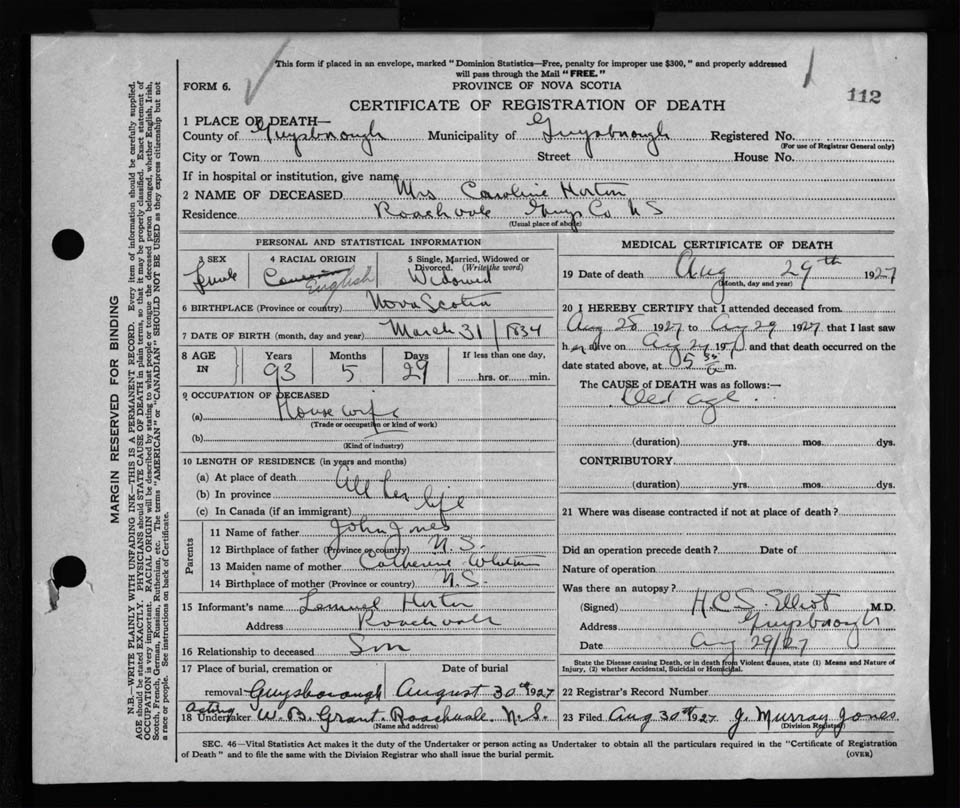 This form if placed in an envelope, marked "Dominion Statistics—Free, penalty for improper use $300," and properly addressed
will pass through the Mail "FREE."
FORM 6.
PROVINCE OF NOVA SCOTIA
112
CERTIFICATE OF REGISTRATION OF DEATH
1 PLACE OF DEATH—
County of Guysborough Municipality of Guysborough Registered No.
(For use of Registrar General only)
City or Town Street House No.
If in hospital or institution, give name
2 NAME OF DECEASED Mrs Caroline Horton
Residence Roachvale Guys Co. N S
(Usual place of abode)
PERSONAL AND STATISTICAL INFORMATION
3 SEX 4 RACIAL ORIGIN 5 Single, Married, Widowed or Divorced. (Write the word)
English Widowed
6 BIRTHPLACE (Province or country) Nova Scotia
7 DATE OF BIRTH (month, day and year) March 31/1834
8 AGE IN Years Months Days If less than one day,
93 5 29 hrs. or min.
9 OCCUPATION OF DECEASED
(a) House wife
(Trade or occupation or kind of work)
(b)
(Kind of industry)
10 LENGTH OF RESIDENCE (in years and months)
(a) At place of death
(b) In province All her life
(c) In Canada (if an immigrant)
Parents
11 Name of father John Jones
12 Birthplace of father (Province or country) N.S.
13 Maiden name of mother Catherine
14 Birthplace of mother (Province or country) N.S.
15 Informant's name Lemuel Horton
Address Roachvale
16 Relationship to deceased Son
17 Place of burial, cremation or Date of burial
removal Guysborough August 30th 1927
acting
18 Undertaker W. B. Grant. Roachvale N. S.
(Name and address)
MEDICAL CERTIFICATE OF DEATH
19 Date of death Aug 29th 1927
(Month, day and year)
20 I HEREBY CERTIFY that I attended deceased from
Aug 28 1927 to Aug 29 1927 that I last saw
her alive on Aug 192 and that death occurred on the
date stated above, at 5 a m.
The CAUSE of DEATH was as follows:—
Old age
(duration) yrs. mos. dys.
CONTRIBUTORY
(duration) yrs. mos. dys.
21 Where was disease contracted if not at place of death?
Did an operation precede death? Date of
Nature of operation
Was there an autopsy?
(Signed) H.C.S. Elliot M.D.
Address Guysborough
Date Aug 29/27
State the Disease causing Death, or in death from Violent Causes, state (1) Means and Nature of
Injury, (2) whether Accidental, Suicidal or Homicidal.
22 Registrar's Record Number
23 Filed Aug 30th 1927 J. Murray Jones
(Division Registrar)
SEC. 46—Vital Statistics Act makes it the duty of the Undertaker or person acting as Undertaker to obtain all the particulars required in the "Certificate of Registration
of Death" and to file the same with the Division Registrar who shall issue the burial permit.
(OVER)
MARGIN RESERVED FOR BINDING
N.B.—WRITE PLAINLY WITH UNFADING INK—THIS IS A PERMANENT RECORD. Every item of information should be carefully supplied.
AGE should be stated EXACTLY. PHYSICIANS should STATE CAUSE OF DEATH in plain terms, so that it may be properly classified. Exact statement of
OCCUPATION is very important. RACIAL ORIGIN will be described by stating to what people or tongue the deceased person belonged, whether English, Irish,
Scotch, French, German, Russian, Ruthenian, etc. The terms "AMERICAN" or "CANADIAN" SHOULD NOT BE USED as they express citizenship but not
a race or people. See instructions on back of Certificate.